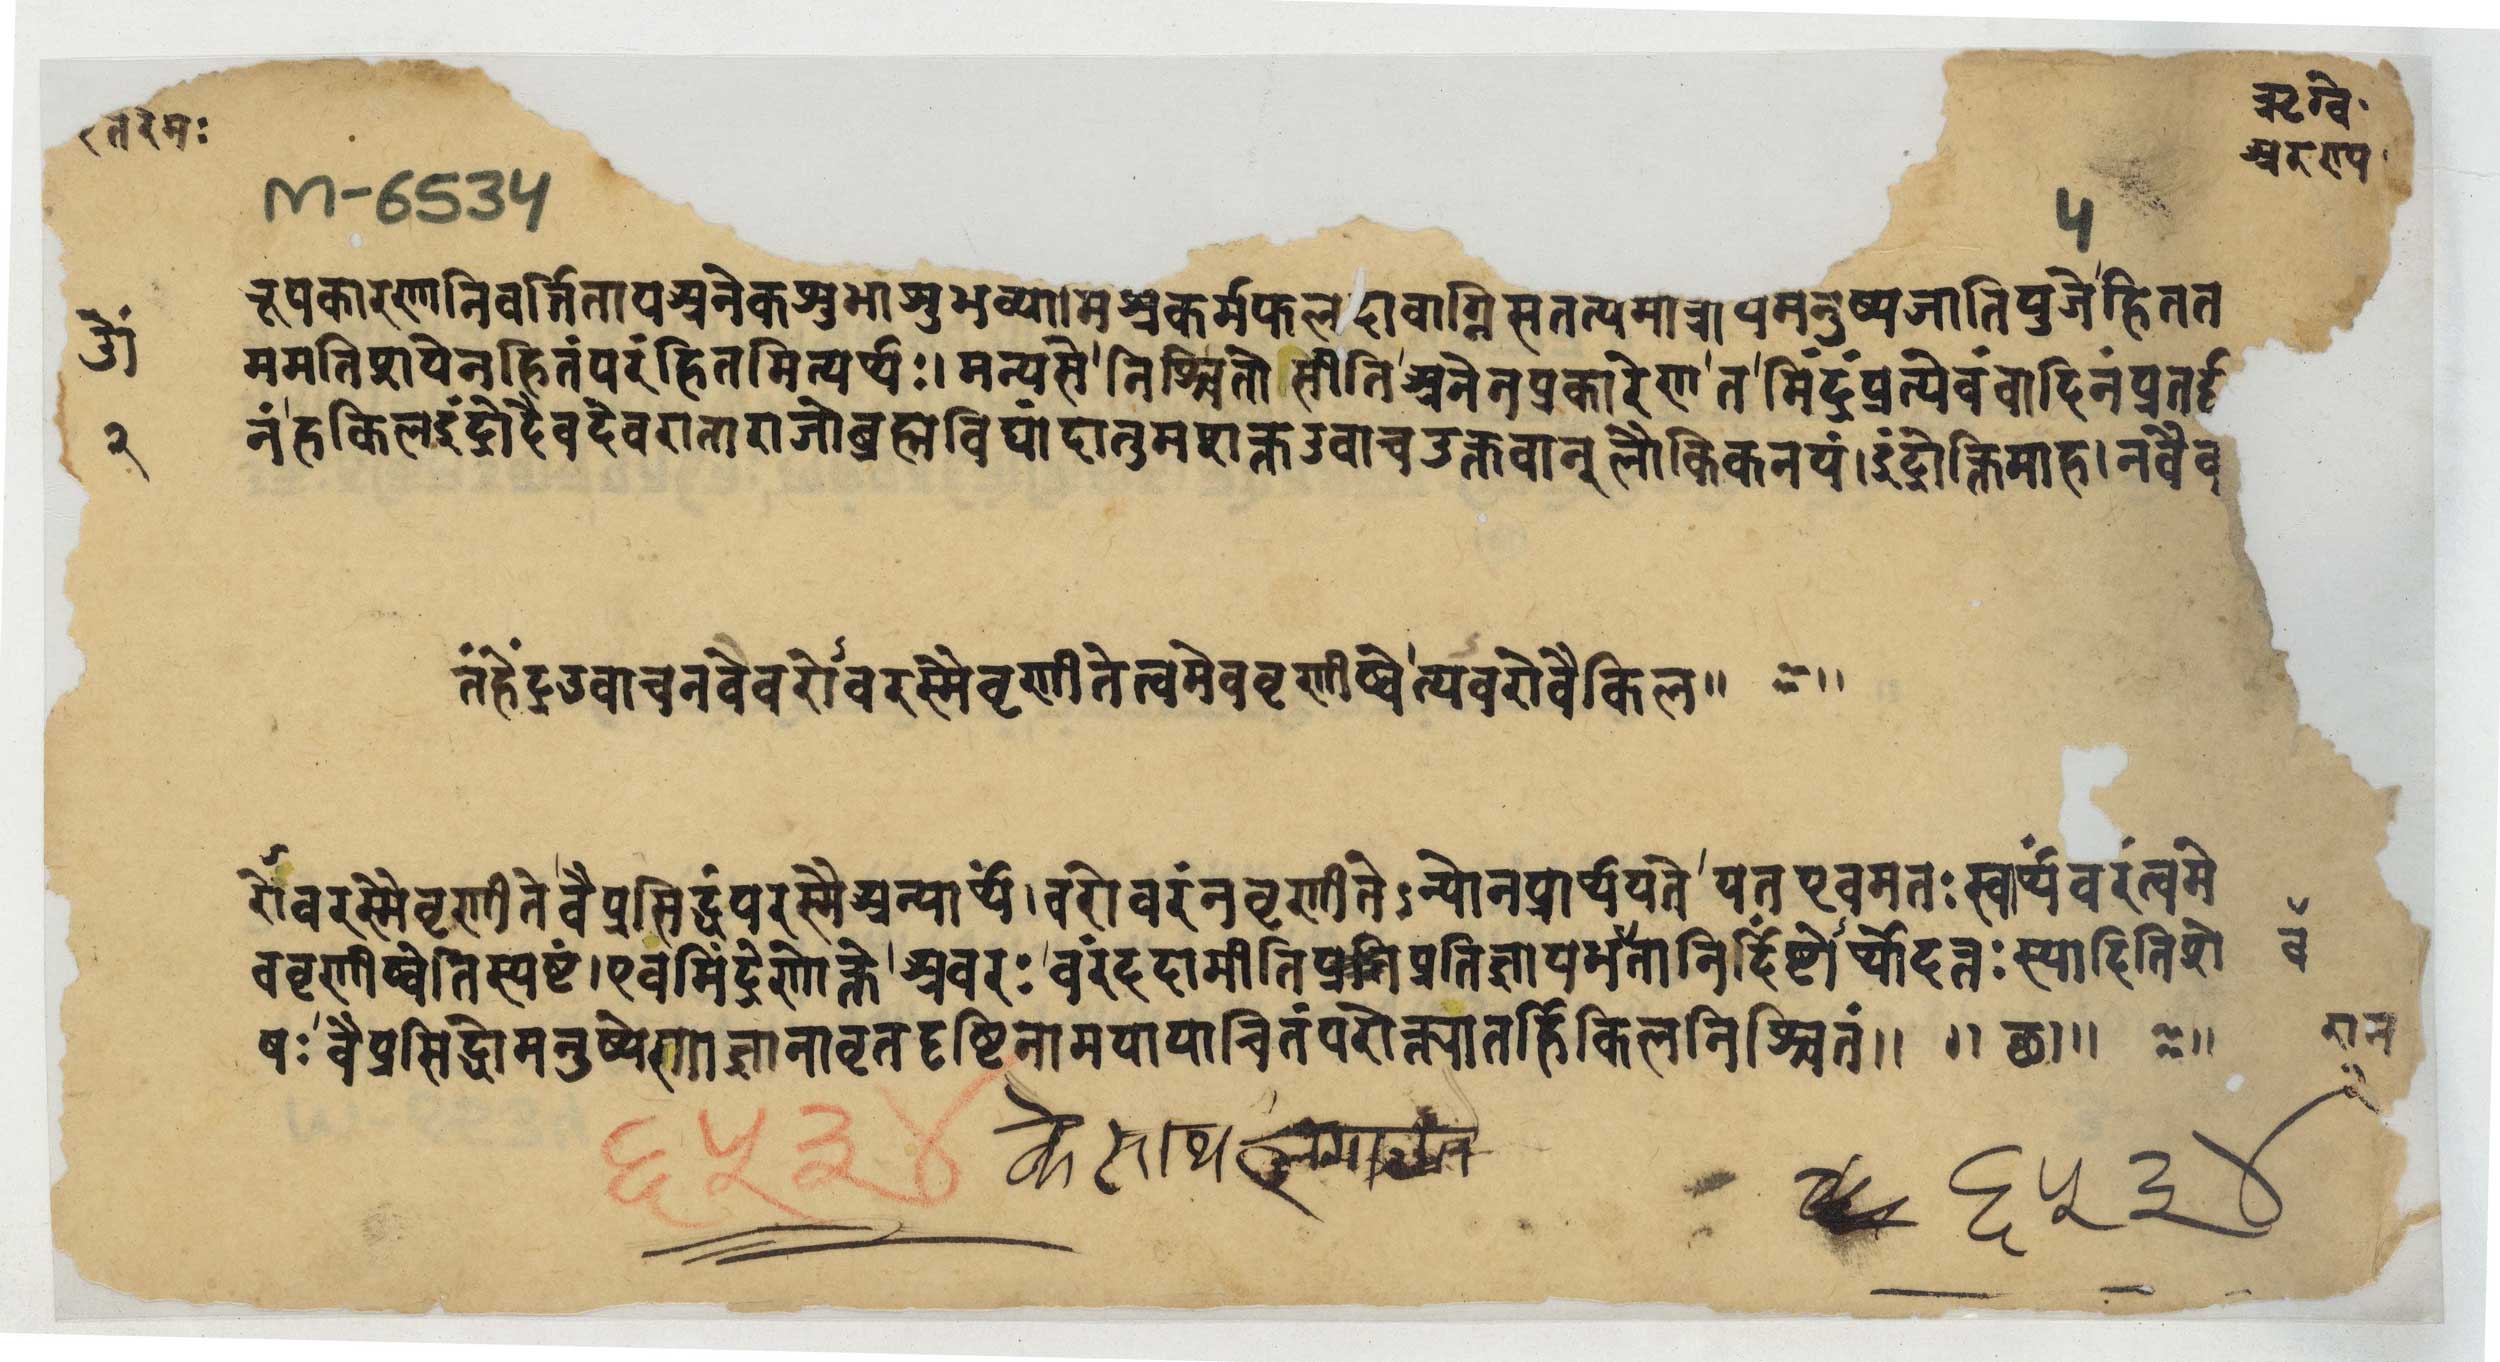 रतरमः
ऋग्वे॰
अरराप
M-6534
५
रूपकारणनिवर्जितापअनेकशुभाशुभव्यामिश्रकर्मफलदावाग्निसतत्यमात्रायमनुष्यजातिपुजे'हिततत
ॐ
ममतिशयेनहितंपरंहितमित्यर्थः।मन्यसे'निश्चितोसीति'अनेनप्रकारेण'त'मिंद्रंप्रत्येवंवादिनंप्रतर्द्द
२
नं'हकिलइंद्रोदैवदेवराताराजोब्रह्मविद्यांदातुमशक्तउवाचउक्तवान्लौकिकनयं।इंद्रोक्तिमाह।नवैव
तंहेंद्रउवाचनवैवरोवरस्मैवृणीतेत्वमेववृणीष्वे'त्यवरोवैकिल॥
रोवरस्मैवृणीते'वैप्रसिद्धंपरस्मैअन्यार्थं।वरोवरंनवृणीतेऽन्योनप्रार्थयते'यतएवमतःस्वार्थंवरंत्वमे
ववृणीष्वेतिस्पष्टं।एवमिंद्रेणोक्ते'अवरः'वरंददामीतिप्रतिज्ञायमतानिर्दिष्टोर्थोदत्तःस्यादितिशे
व
षः'वैप्रसिद्धोमनुष्येणाज्ञानावृतदृष्टिनामयायाचितंपरोक्त्यातर्हिकिलनिश्चितं॥ ॥छ॥
रान
६५३४ के साथ
६५३४